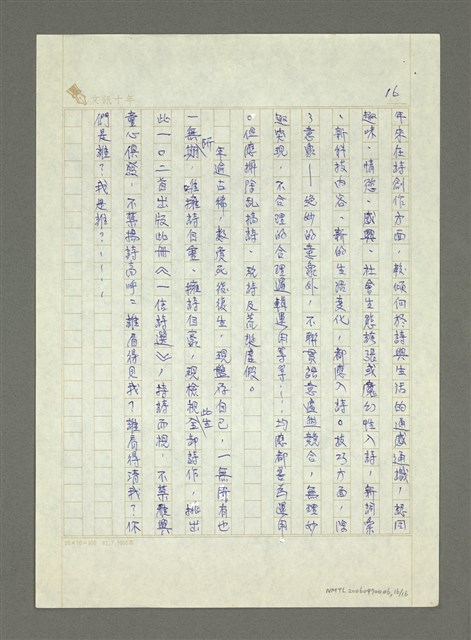 16
文訊十年
年來在詩創作方面，較傾向於詩與生活的通感通識，感同
趣味、情慾、感興、社會生態誇張或魔幻性入詩，新詞彙
、新科技內容、新的生活變化，都應入詩。技巧方面，除
了意象——絕妙的意象外，不聯貫語意虛無競合，無理妙
趣突現，不合理的合理邏輯運用等等……均應都善為運用
。但應摒除亂搞詩、玩詩及荒誕虛假。
年逾古稀，數度死後復生，現盤存自己，一無所有也
一無所期，唯擁詩自重、擁詩自豪，現檢視此生全部詩作，挑出
此一〇二首出版此冊《一信詩選》，持詩而視，不禁雖興
童心俱發，不禁揚詩高呼：誰看得見我？誰看得清我？你
們是誰？我是誰？……
NMTL 2006 16/16